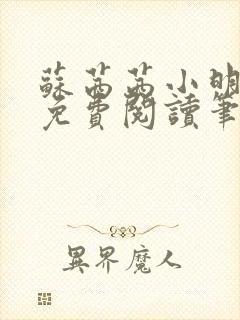 蘇茜茜小明
免費閱讀筆
異界魔人